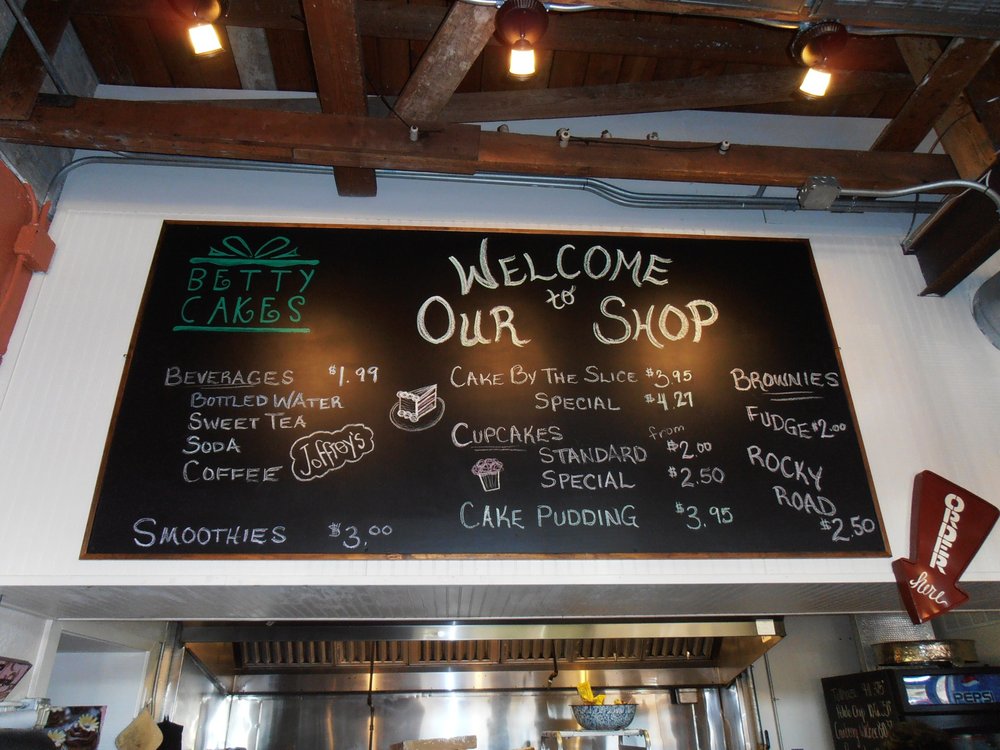 BETTY
CAKES
WELCOME
to
OUR SHOP
BEVERAGES $1.99
BOTTLED WATER
SWEET TEA
SODA
COFFEE
Joffrey's
SMOOTHIES $3.00
CAKE BY THE SLICE $3.95
SPECIAL $4.27
CUPCAKES from
STANDARD $2.00
SPECIAL $2.50
CAKE PUDDING $3.95
BROWNIES
FUDGE $2.00
ROCKY
ROAD
$2.50
ORDER
here
PEPSI